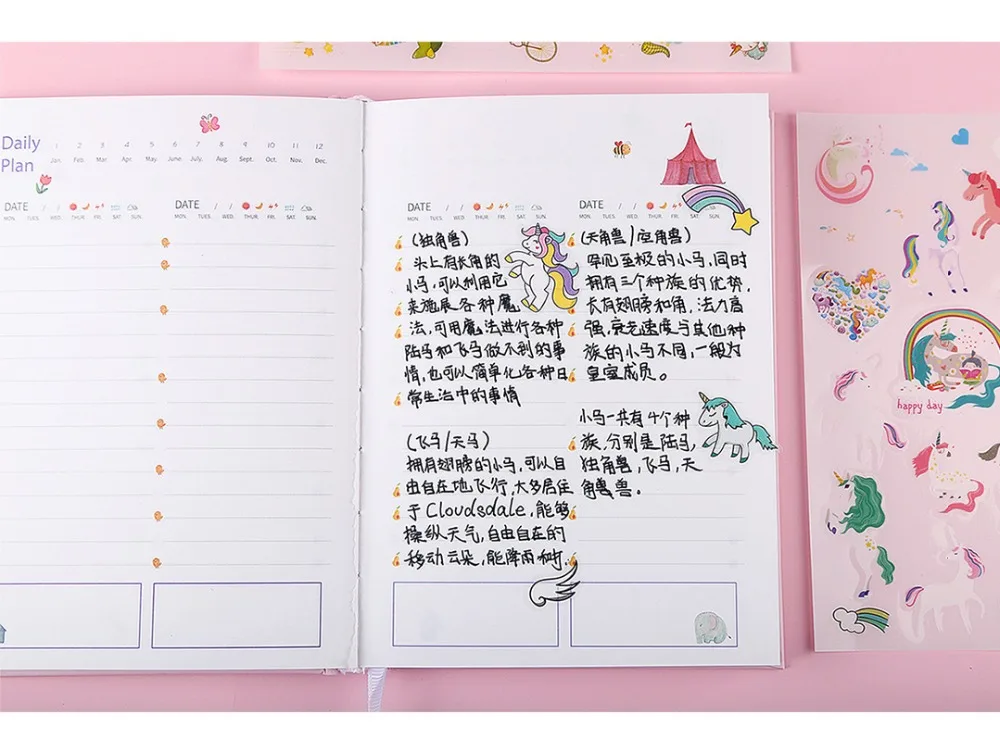 Daily
Plan
1 2 3 4 5 6 7 8 9 10 11 12
Jan. Feb. Mar. Apr. May June July. Aug. Sept. Oct. Nov. Dec.
DATE / /
MON. TUES. WED. THUR. FRI. SAT. SUN.
DATE / /
MON. TUES. WED. THUR. FRI. SAT. SUN.
DATE / /
MON. TUES. WED. THUR. FRI. SAT. SUN.
(独角兽)
头上有长角的
小马,可以利用它
来施展各种魔
法,可用魔法进行各种
陆马和飞马做不到的事
情,也可以简单化各种日
常生活中的事情
(飞马/天马)
拥有翅膀的小马,可以自
由自在地飞行,大多居住
于Cloudsdale,能够
操纵天气,自由自在的
移动云朵,能降雨
DATE / /
MON. TUES. WED. THUR. FRI. SAT. SUN.
(天角兽/空角兽)
罕见至极的小马,同时
拥有三个种族的优势,
长有翅膀和角,法力高
强,衰老速度与其他种
族的小马不同,一般为
皇室成员。
小马一共有4个种
族,分别是陆马,
独角兽,飞马,天
角兽。
happy day